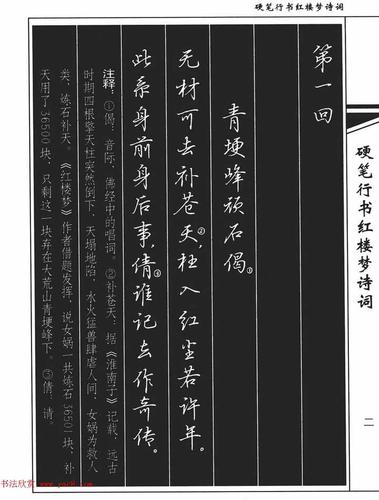 硬笔行书红楼梦诗词
第一回
青埂峰顽石偈①
无材可去补苍天②，枉入红尘若许年。
此系身前身后事，倩③谁记去作奇传。
注释：①偈：音际，佛经中的唱词。②补苍天：据《淮南子》记载，远古
时期四根擎天柱突然倒下，天塌地陷，水火猛兽肆虐人间，女娲为救人
类，炼石补天。《红楼梦》作者借题发挥，说女娲一共炼石36501块，补
天用了36500块，只剩这一块弃在大荒山青埂峰下。③倩，请。
硬笔行书红楼梦诗词
二
书法欣赏 www.yac8.com